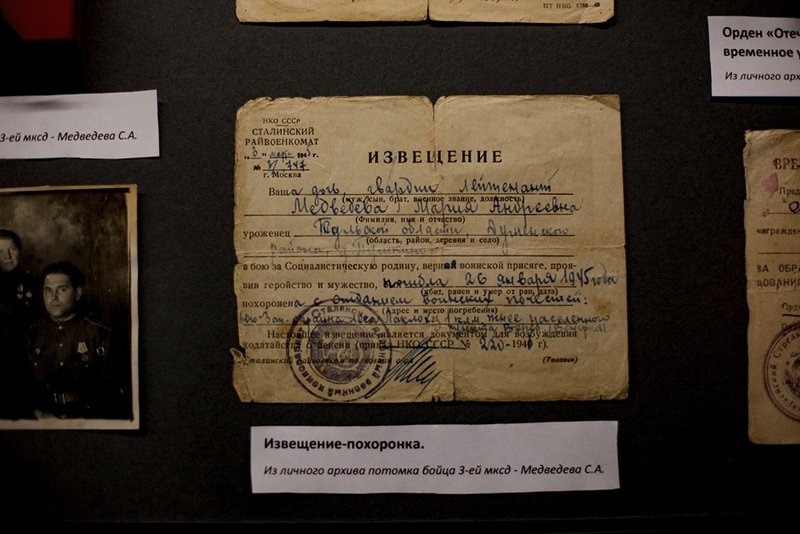 ПТ НКО.
Орден «Отеч
временное у
Из личного арх
3-ей мксд - Медведева С.А.
НКО СССР
СТАЛИНСКИЙ
РАЙВОЕНКОМАТ
„3" 1945 г.
№ 747
г. Москва
ИЗВЕЩЕНИЕ
Ваша дочь, гвардии лейтенант
(муж, сын, брат, военное звание, должность)
Медведева Мария Андреевна
(Фамилия, имя и отчество)
уроженец Тульской области,
(область, район, деревня и село)
района,
в бою за Социалистическую родину, верная воинской присяге, проя-
вив геройство и мужество, погибла 26 января 1945 года
(убит, ранен и умер от ран, дата)
похоронена с отданием воинских почестей:
(Адрес и место погребения)
Юго-Зап. окраина леса 1 км. населенного
пункта
Настоящее извещение является документом для возбуждения
ходатайства о пенсии (приказ НКО СССР № 220-1941 г.).
Сталинский райвоенком полковник
(Тюкавин)
Извещение-похоронка.
Из личного архива потомка бойца 3-ей мксд - Медведева С.А.
ВРЕ
Пред
награжден
ЗА ОБРА
ДОВАНИЯ